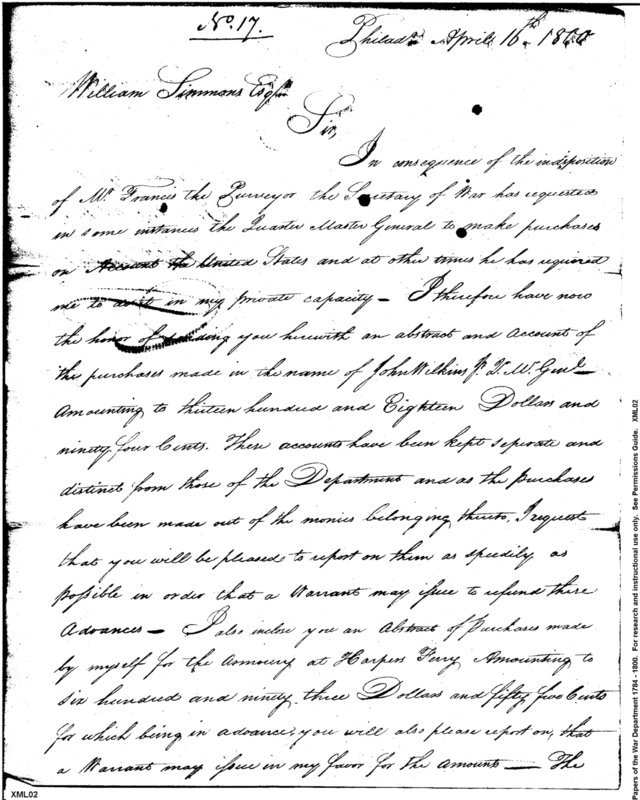 No. 17.
Philada. April 16th. 1800
William Simmons Esqr.
Sir,
In consequence of the indisposition
of Mr. Francis the Purveyor the Secretary of War has requested
in some instances the Quarter Master General to make purchases
on Account the United States and at other times he has required
me to do it in my private capacity – I therefore have now
the honor of sending you herewith an abstract and Account of
the purchases made in the name of John Wilkins Jr. Qr. Mr. Genl –
Amounting to thirteen hundred and Eighteen Dollars and
ninety four Cents. These accounts have been kept seperate and
distinct from those of the Department and as the purchases
have been made out of the monies belonging thereto, I request
that you will be pleased to report on them as speedily as
possible in order that a Warrant may issue to refund these
Advances – I also inclose you an Abstract of Purchases made
by myself for the Armoury at Harpers Ferry Amounting to
six hundred and ninety three Dollars and fifty five Cents
for which being in advance, you will also please report on, that
a Warrant may issue in my favor for the Amounts – The
XML02
Papers of the War Department 1784 - 1800. For research and instructional use only. See Permissions Guide. XML02